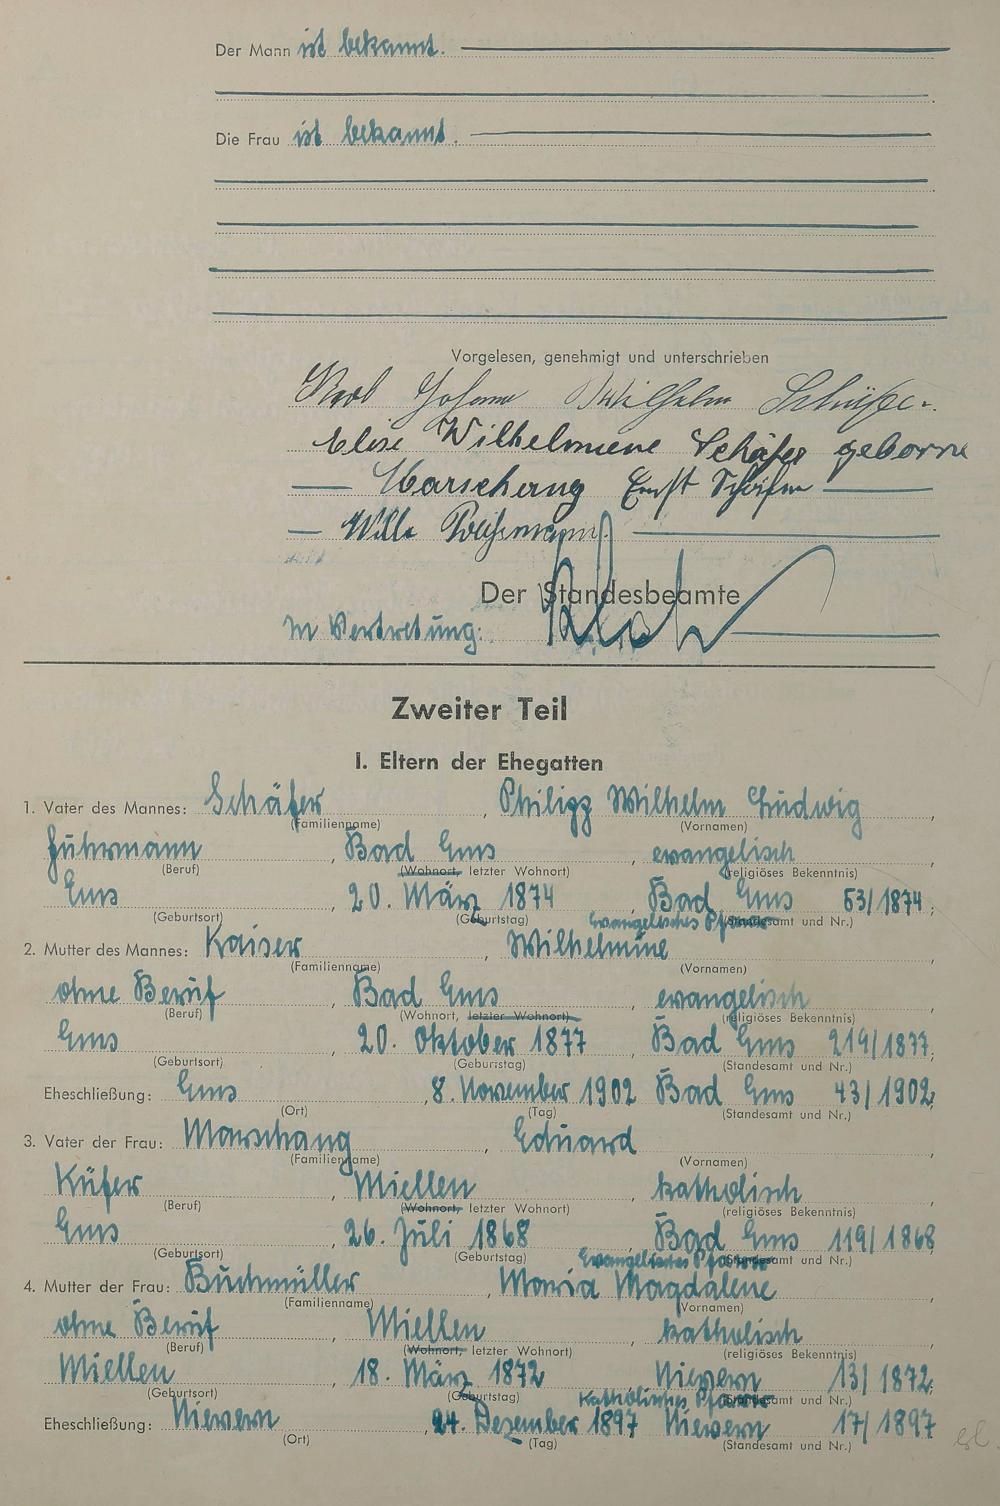 Der Mann ist bekannt.
Die Frau ist bekannt.
Vorgelesen, genehmigt und unterschrieben
Karl Johann Wilhelm Schäfer.
Elise Wilhelmiene Schäfer geborne
Marschang Ernst Schäfer
Willi
Der Standesbeamte
In Vertretung:
Zweiter Teil
I. Eltern der Ehegatten
1. Vater des Mannes: Schäfer, Philipp Wilhelm Ludwig,
(Familienname) (Vornamen)
Fuhrmann, Bad Ems, evangelisch,
(Beruf) (Wohnort, letzter Wohnort) (religiöses Bekenntnis)
Ems, 20. März 1874, Bad Ems 53/1874;
(Geburtsort) (Geburtstag) Evangelisches Pfarramt (Standesamt und Nr.)
2. Mutter des Mannes: Kaiser, Wilhelmine,
(Familienname) (Vornamen)
ohne Beruf, Bad Ems, evangelisch,
(Beruf) (Wohnort, letzter Wohnort) (religiöses Bekenntnis)
Ems, 20. Oktober 1877, Bad Ems 219/1877;
(Geburtsort) (Geburtstag) (Standesamt und Nr.)
Eheschließung: Ems, 8. November 1902 Bad Ems 43/1902;
(Ort) (Tag) (Standesamt und Nr.)
3. Vater der Frau: Marschang, Eduard,
(Familienname) (Vornamen)
Küfer, Miellen, katholisch,
(Beruf) (Wohnort, letzter Wohnort) (religiöses Bekenntnis)
Ems, 26. Juli 1868, Bad Ems 119/1868;
(Geburtsort) (Geburtstag) Evangelisches Pfarramt (Standesamt und Nr.)
4. Mutter der Frau: Buchmüller, Maria Magdalene,
(Familienname) (Vornamen)
ohne Beruf, Miellen, katholisch,
(Beruf) (Wohnort, letzter Wohnort) (religiöses Bekenntnis)
Miellen, 18. März 1872, Nievern 13/1872;
(Geburtsort) (Geburtstag) Katholisches Pfarramt (Standesamt und Nr.)
Eheschließung: Nievern, 24. Dezember 1897 Nievern 17/1897
(Ort) (Tag) (Standesamt und Nr.)